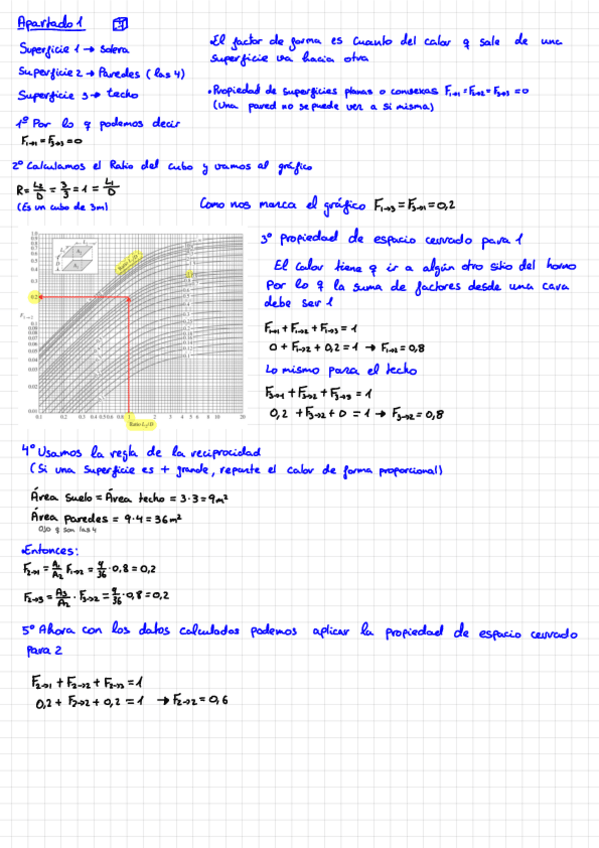 Apartado 1
Superficie 1 → solera
Superficie 2 → Paredes (las 4)
Superficie 3 → techo
•El factor de forma es cuanto del calor q sale de una
superficie va hacia otra
•Propiedad de superficies planas o convexas F1→1 = F2→2 = F3→3 = 0
(Una pared no se puede ver a si misma)
1º Por lo q podemos decir
F1→1 = F3→3 = 0
2º Calculamos el Ratio del cubo y vamos al gráfico
R = L2/D = 3/3 = 1 = L1/D
(Es un cubo de 3m)
Como nos marca el gráfico F1→3 = F3→1 = 0,2
Ratio L1/D
Ratio L2/D
3º propiedad de espacio cerrado para 1
El calor tiene q ir a algún otro sitio del horno
Por lo q la suma de factores desde una cara
debe ser 1
F1→1 + F1→2 + F1→3 = 1
0 + F1→2 + 0,2 = 1 → F1→2 = 0,8
Lo mismo para el techo
F3→1 + F3→2 + F3→3 = 1
0,2 + F3→2 + 0 = 1 → F3→2 = 0,8
4º Usamos la regla de la reciprocidad
(Si una superficie es + grande, reparte el calor de forma proporcional)
Área suelo = Área techo = 3·3 = 9m²
Área paredes = 9·4 = 36m²
Ojo q son las 4
•Entonces:
F2→1 = A1/A2 F1→2 = 9/36 · 0,8 = 0,2
F2→3 = A3/A2 · F3→2 = 9/36 · 0,8 = 0,2
5º Ahora con los datos calculados podemos aplicar la propiedad de espacio cerrado
para 2
F2→1 + F2→2 + F2→3 = 1
0,2 + F2→2 + 0,2 = 1 → F2→2 = 0,6